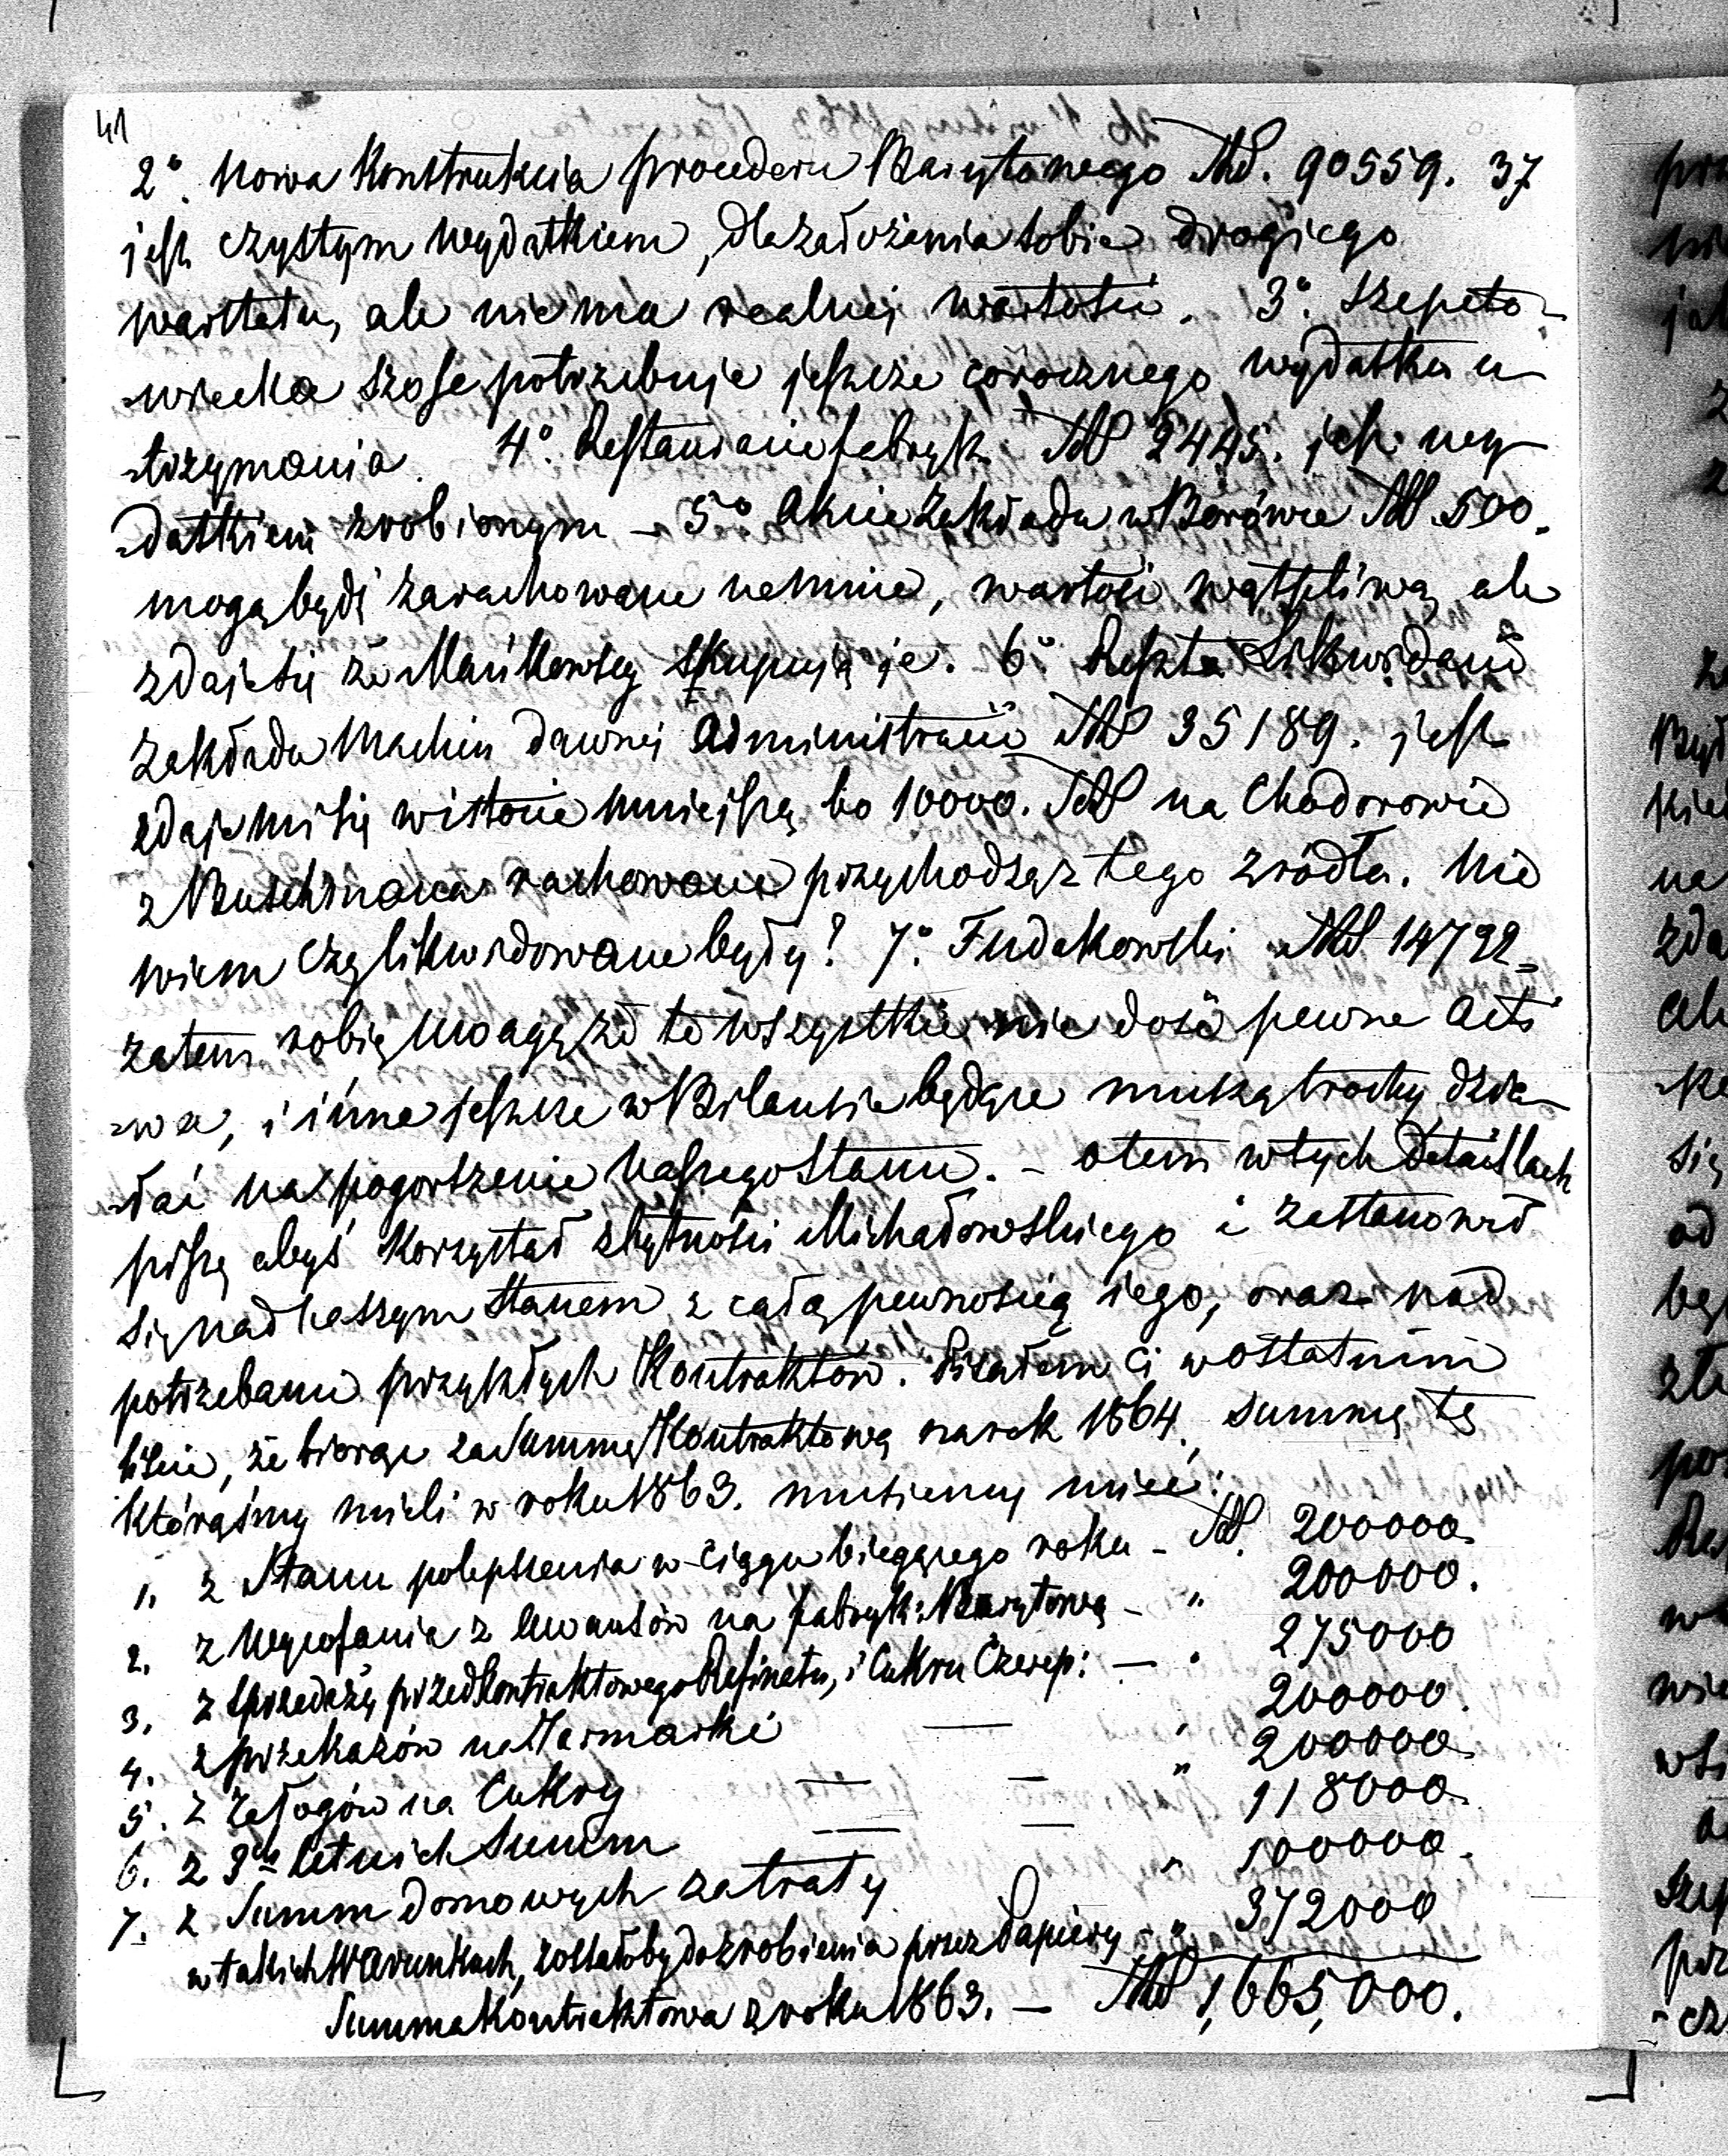 41
2° Nowa Konstrukcia procederu Barytowego RS. 90559. 37
jest czystym wydatkiem, dla założenia sobie drogiego
warsztatu, ale nie ma realnej wartości. 3° Szepeto-
-wiecka szose potrzebuje jeszcze corocznego wydatku u-
-trzymania. 4° Restauracie fabryk RS 2445. jest wy-
-datkiem zrobionym – 5° Akcie Zakładu w Borówce RS 500.
mogą bydź zarachowane na mnie, wartości wątpliwą ale
zdaje się że Mańkowscy skupują je. 6° Reszta Likwidacii
Zakładu Machin dawnej Administracii RS 35189. jest
zdaje mi się w istocie mniejszą bo 10000. RS na Chodorowie
z rachowane przychodzą z tego źródła. Nie
wiem czy likwidowane były? 7° Fudakowski RS 14792 =
zatem robię uwagę że te wszystkie nie dość pewne acti
-wa, i inne jeszcze w Bilansie będące muszą trochę dzia-
-łać na pogorszenie naszego Stanu. – o tem w tych Detaillach
piszę abyś korzystał z bytności Michałowskiego i zastanowił
się nad naszym Stanem z całą pewnością iego, oraz nad
potrzebami przyszłych Kontraktów. Pisałem Ci w ostatnim
liście, że biorąc za Summę Kontraktową na rok 1864. Summę tę
którąśmy mieli w roku 1863. musiemy mieć:
1. z Stanu polepszenia w ciągu bieżącego roku – RS. 200000.
2. z Wycofania z Awansów na fabryk: Barytową – " 200000.
3. z sprzedaży przedkontraktowego Rafinatu, i Cukru Czerep: – " 275000
4. z przekazów na Jarmarki — " 200000.
5. z Załogów na Cukry — — " 200000.
6. z 3ch letnich Summ — — 118000.
7. z Summ Domowych zatraty " 100000.
w takich Warunkach, zostałoby do zrobienia przez Papiery – " 372000
Summa Kontraktowa z roku 1863. – RS 1,665,000.